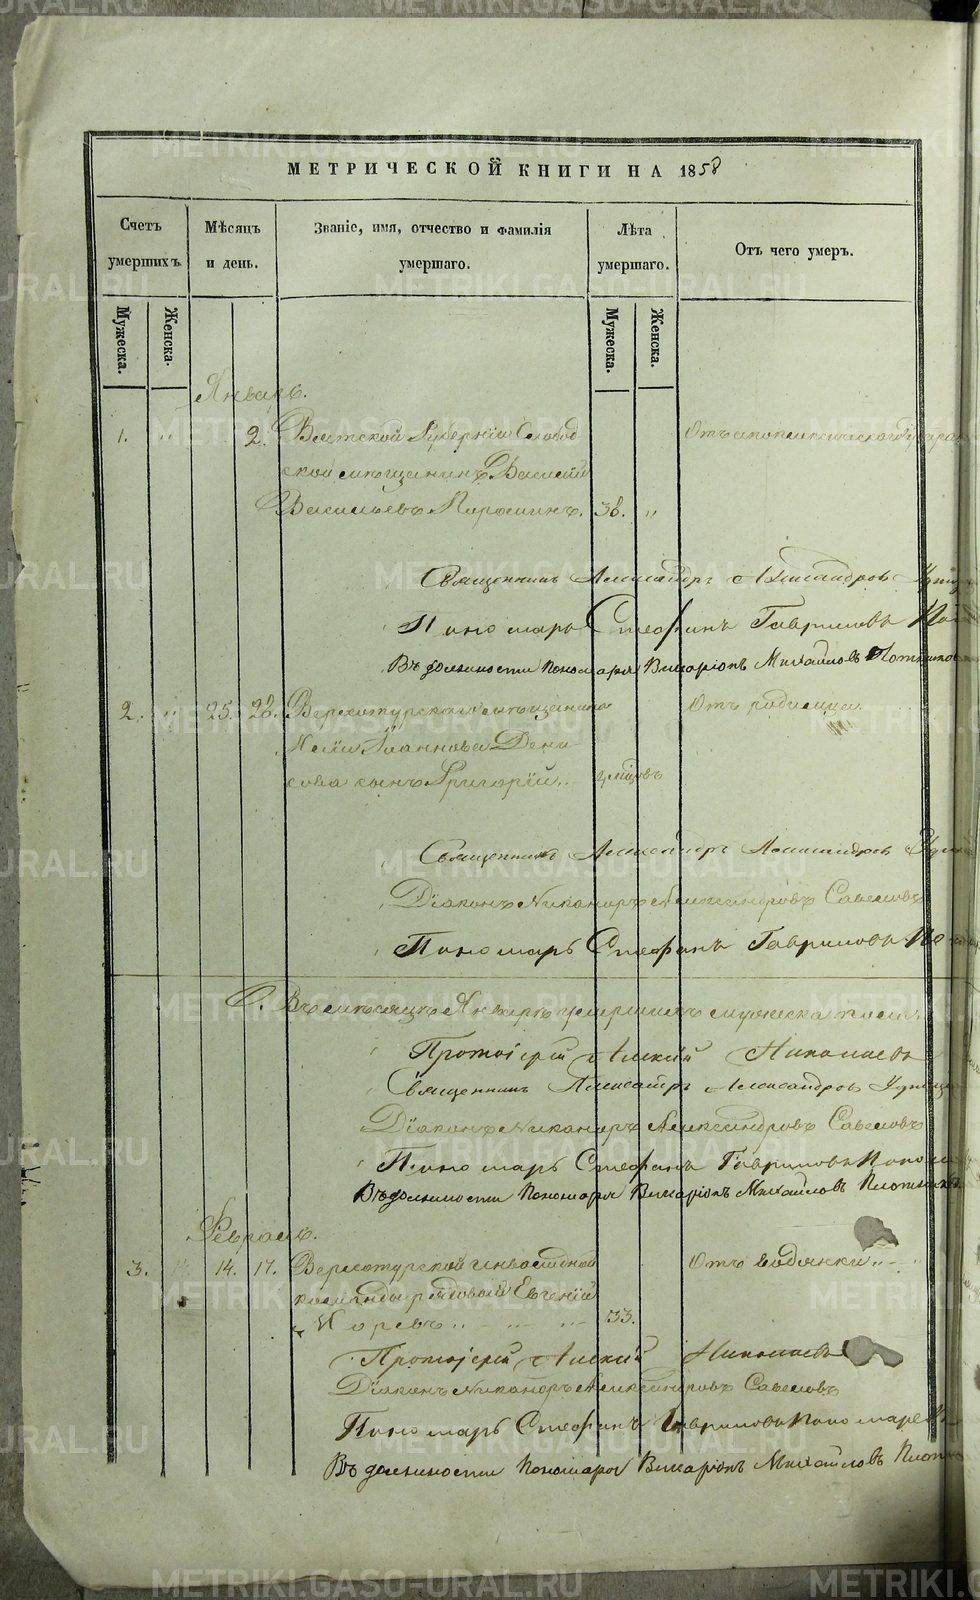 МЕТРИЧЕСКОЙ КНИГИ НА 1858
Счетъ умершихъ.
Мѣсяцъ и день.
Званіе, имя, отчество и фамилія умершаго.
Лѣта умершаго.
Отъ чего умеръ.
Мужеска.
Женска.
Мужеска.
Женска.
Январь.
1. " 2. Вятской Губерніи Слобод
Отъ апоплексическаго удара
ской мѣщанинъ Василій
Васильевъ 38. "
Священникъ Александръ Александровъ
Пономарь Стефанъ Гавриловъ
Въ должности Пономаря Виларіонъ Михайловъ Плотников
2. " 25. 28. Верхотурскаго мѣщанина
Отъ родимца.
Іоаннова Дени
сова сынъ Григорій.. мѣсцовъ
Священникъ Александръ Александровъ
Діаконъ Никаноръ Александровъ Савеловъ
Пономарь Стефанъ Гавриловъ По
Въ мѣсяцѣ Январѣ умершихъ мужеска пола
Протоіерей Алекій Николаевъ
Священникъ Александръ Александровъ
Діаконъ Никаноръ Александровъ Савеловъ
Пономарь Стефанъ Гавриловъ Попом
Въ должности Пономаря Виларіонъ Михайловъ Плотников
Февраль.
3. 14. 17. Верхотурской инвалидной
Отъ водянки
команды рядовой Евгеній
33.
Протоіерей Алекій Николаевъ
Діаконъ Никаноръ Александровъ Савеловъ
Пономарь Стефанъ Гавриловъ Пономарев
Въ должности Пономаря Виларіонъ Михайловъ Плотн
METRIKI.GASO-URAL.RU